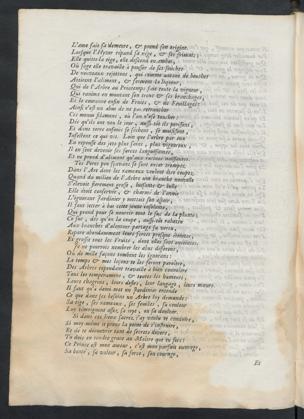 L'ame fait sa demeure, & prend son origine.
Lorsque l'Hyver répand sa rage, & ses frimats;
Elle quitte la tige, elle descend en
Où sage elle travaille à pousser de ses
De nouveaux rejettons, qui comme autant de bouches
Attirent l'aliment, & forment la liqueur,
Qui de l'Arbre au Printemps fait toute la vigueur,
Qui ranime en montant son tronc & ses branchages,
Et le couronne enfin de Fruits, & de Feuillages:
Ainsi c'est un
Ces menus filamens, où l'on n'ose toucher:
Dés qu'ils ont veu le jour, aussi-tôt ils perissent,
Et dans terre enfouis se séchent, se moisissent,
Infectent ce qui vit. Loin que l'arbre par eux
En repousse des jets plus sains, plus vigoureux,
Il en sent devenir ses forces languissantes,
Et ne prend d'aliment qu'aux racines naissantes.
Tes Peres peu sçavans se sont encor trompez
Dans l'Art dont les rameaux veulent être coupez.
Quand du milieu de l'Arbre une branche nouvelle
S'élevoit fierement grosse, luisante & belle
Elle étoit conservée, & charmé de l'avoir
L'ignorant Jardinier y mettoit son espoir;
Il faut jetter à bas cette jeune
Qui prend pour se nourrir tout le suc de la plante;
Ce suc, dés qu'on la coupe, aussi-tôt rabatu
Aux branches d'alentour partage sa vertu,
Repare abondamment leurs forces presque éteintes;
Et grossit tous les Fruits, dont elles sont enceintes.
Je ne pourrois nombrer les abus differens,
Où de mille façons tombent les ignorans:
Le temps & mes leçons te les feront paroître,
Des Arbres cependant travaille à bien connoître
Tous les temperamens, & toutes les humeurs,
Leurs chagrins, leurs desirs, leur langage, leurs mœurs.
Il faut qu'à demi mot un Jardinier entende
Ce que dans ses besoins un Arbre luy demande:
Sa tige, ses rameaux, ses feuilles, sa couleur
Luy témoignent assez sa joye, ou sa douleur.
Si dans ces lieux sacrez j'ay voulu te conduire,
Si moy-même je prens la peine de t'instruire,
Et de te découvrir tant de secrets divers;
Tu dois en rendre grace au Maître que tu sers:
Ce Prince est mon amour, c'est mon parfait ouvrage,
Sa bonté, sa valeur, sa force, son courage,
Et